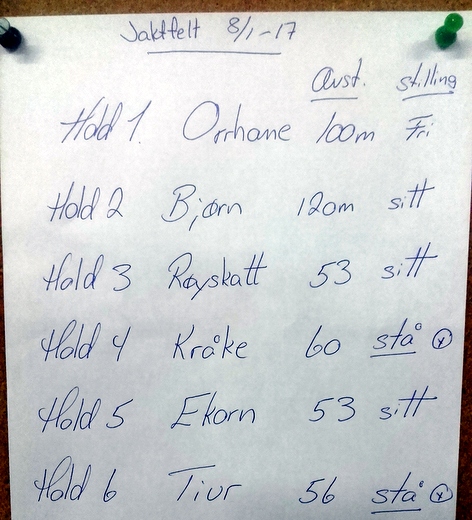 Jaktfelt 8/1-17
Avst. stilling
Hold 1. Orrhane 100m Fri
Hold 2 Bjørn 120m sitt
Hold 3 Røyskatt 53 sitt
Hold 4 Kråke 60 stå ⓧ
Hold 5 Ekorn 53 sitt
Hold 6 Tiur 56 stå ⓧ